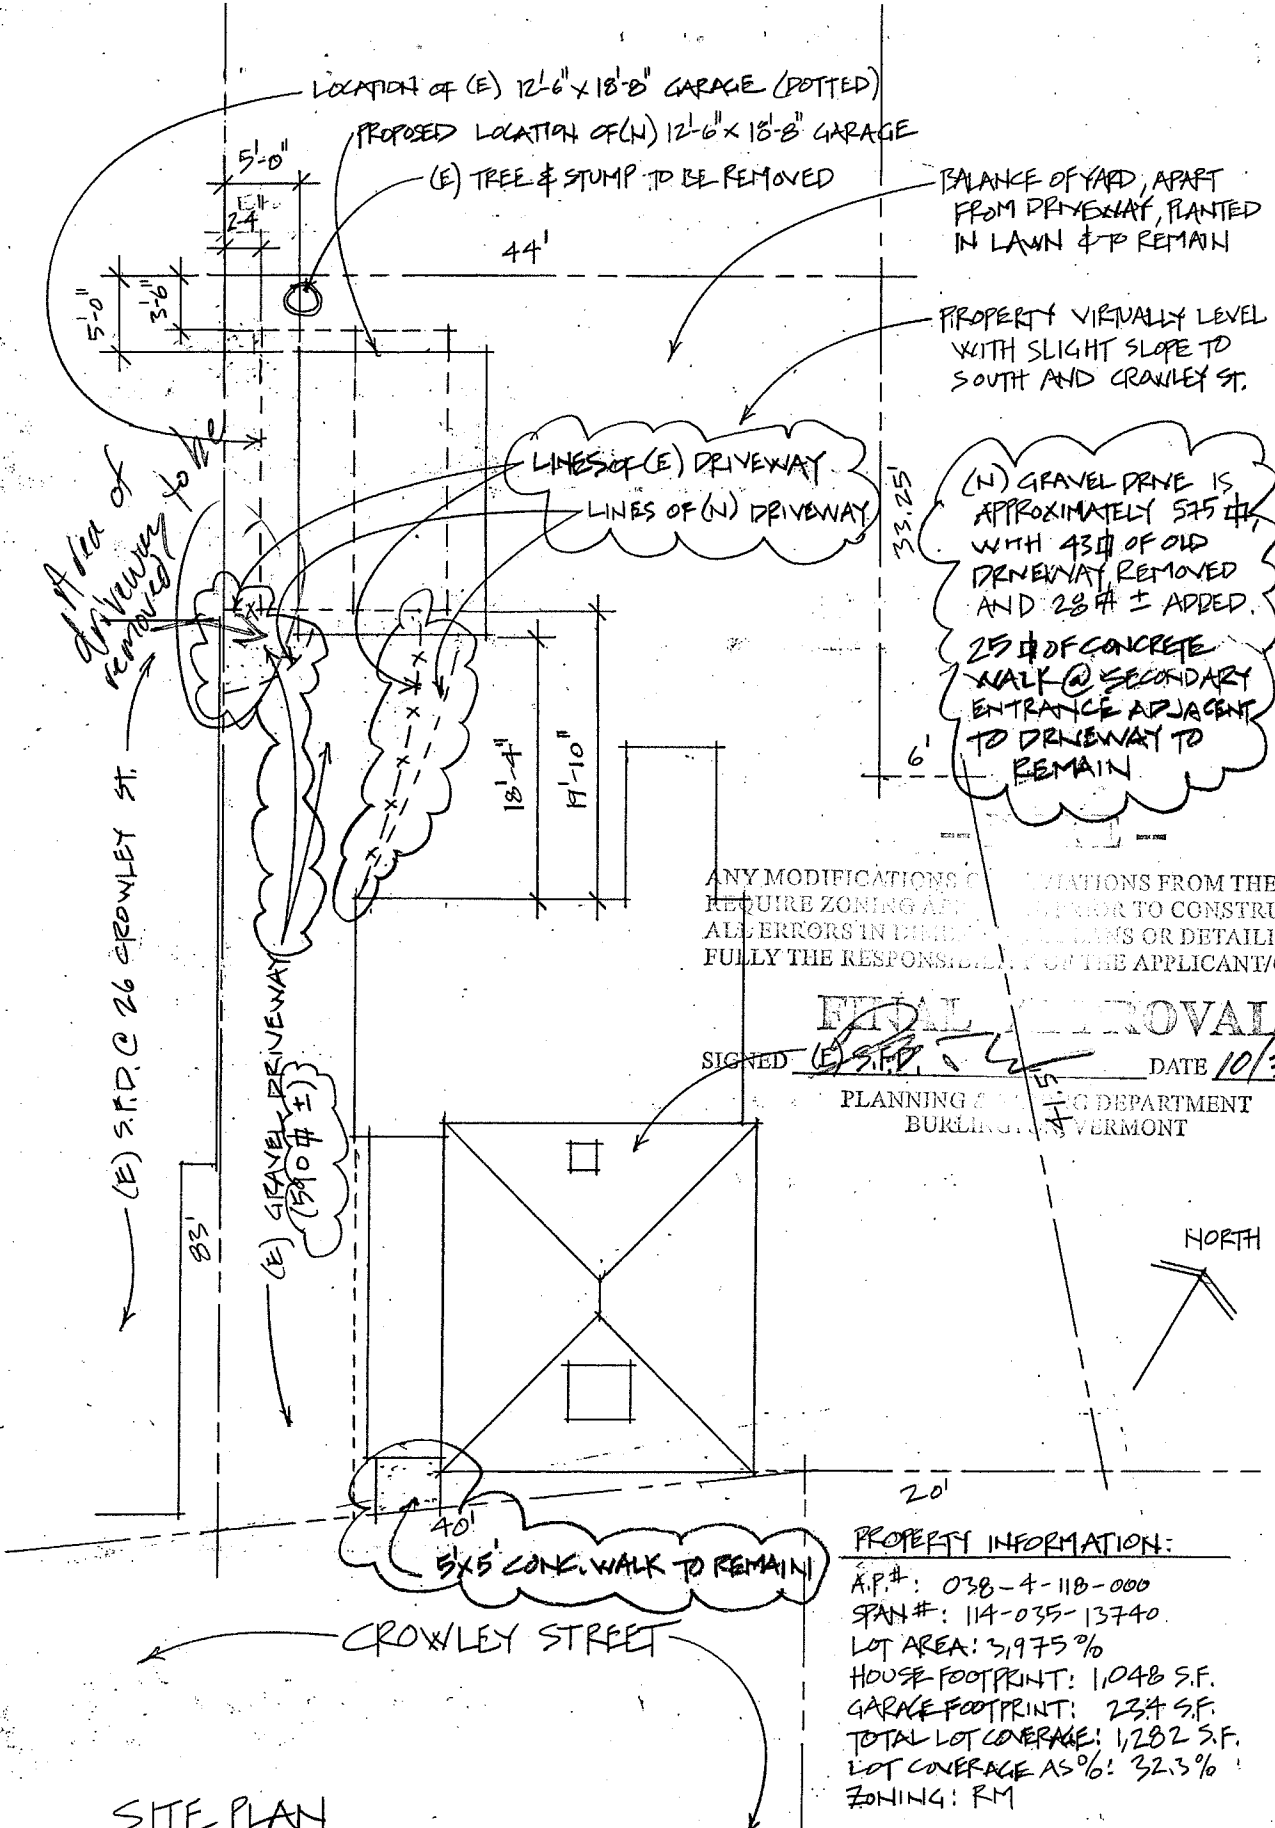 LOCATION OF (E) 12'-6" x 18'-8" GARAGE (DOTTED)
PROPOSED LOCATION OF (N) 12'-6" x 18'-8" GARAGE
(E) TREE & STUMP TO BE REMOVED
5'-0"
2'-4"
44'
5'-0"
3'-6"
BALANCE OF YARD, APART
FROM DRIVEWAY, PLANTED
IN LAWN & TO REMAIN
PROPERTY VIRTUALLY LEVEL
WITH SLIGHT SLOPE TO
SOUTH AND CROWLEY ST.
LINES OF (E) DRIVEWAY
LINES OF (N) DRIVEWAY
33.25'
Area of
driveway to be
removed
(N) GRAVEL DRIVE IS
APPROXIMATELY 575 #,
WITH 43 # OF OLD
DRIVEWAY REMOVED
AND 28 # ± ADDED.
25 # OF CONCRETE
WALK @ SECONDARY
ENTRANCE ADJACENT
TO DRIVEWAY TO
REMAIN
6'
18'-4"
19'-10"
(E) S.F.D. @ 26 CROWLEY ST.
(E) GRAVEL DRIVEWAY
(590 # ±)
83'
ANY MODIFICATIONS O VIATIONS FROM THE
REQUIRE ZONING AP PRIOR TO CONSTRU
ALL ERRORS IN DIME PLANS OR DETAILI
FULLY THE RESPONSIBILITY OF THE APPLICANT/
FINAL APPROVAL
SIGNED DATE 10/
(E) S.F.D.
PLANNING & ZONING DEPARTMENT
BURLINGTON, VERMONT
41.5'
NORTH
20'
40'
5'x5' CONC. WALK TO REMAIN
CROWLEY STREET
PROPERTY INFORMATION:
A.P.#: 038-4-118-000
SPAN#: 114-035-13740
LOT AREA: 3,975 %
HOUSE FOOTPRINT: 1,048 S.F.
GARAGE FOOTPRINT: 234 S.F.
TOTAL LOT COVERAGE: 1,282 S.F.
LOT COVERAGE AS %: 32.3%
ZONING: RM
SITE PLAN